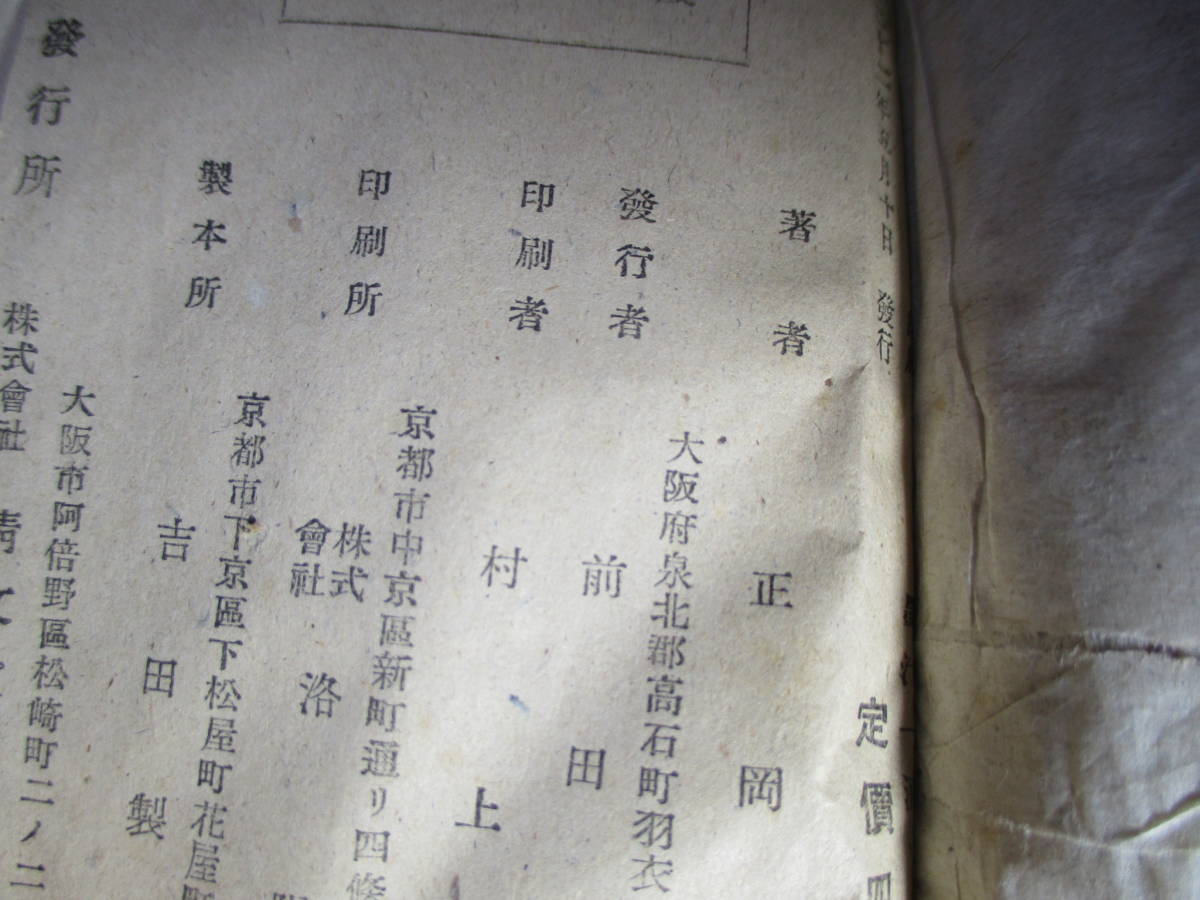 十日 發行
定價
著者 正岡
大阪府泉北郡高石町羽衣
發行者 前田
印刷者 村上
京都市中京區新町通リ四條
印刷所 株式會社 洛
京都市下京區下松屋町花屋町
製本所 吉田製
大阪市阿倍野區松崎町二ノ二
發行所 株式會社